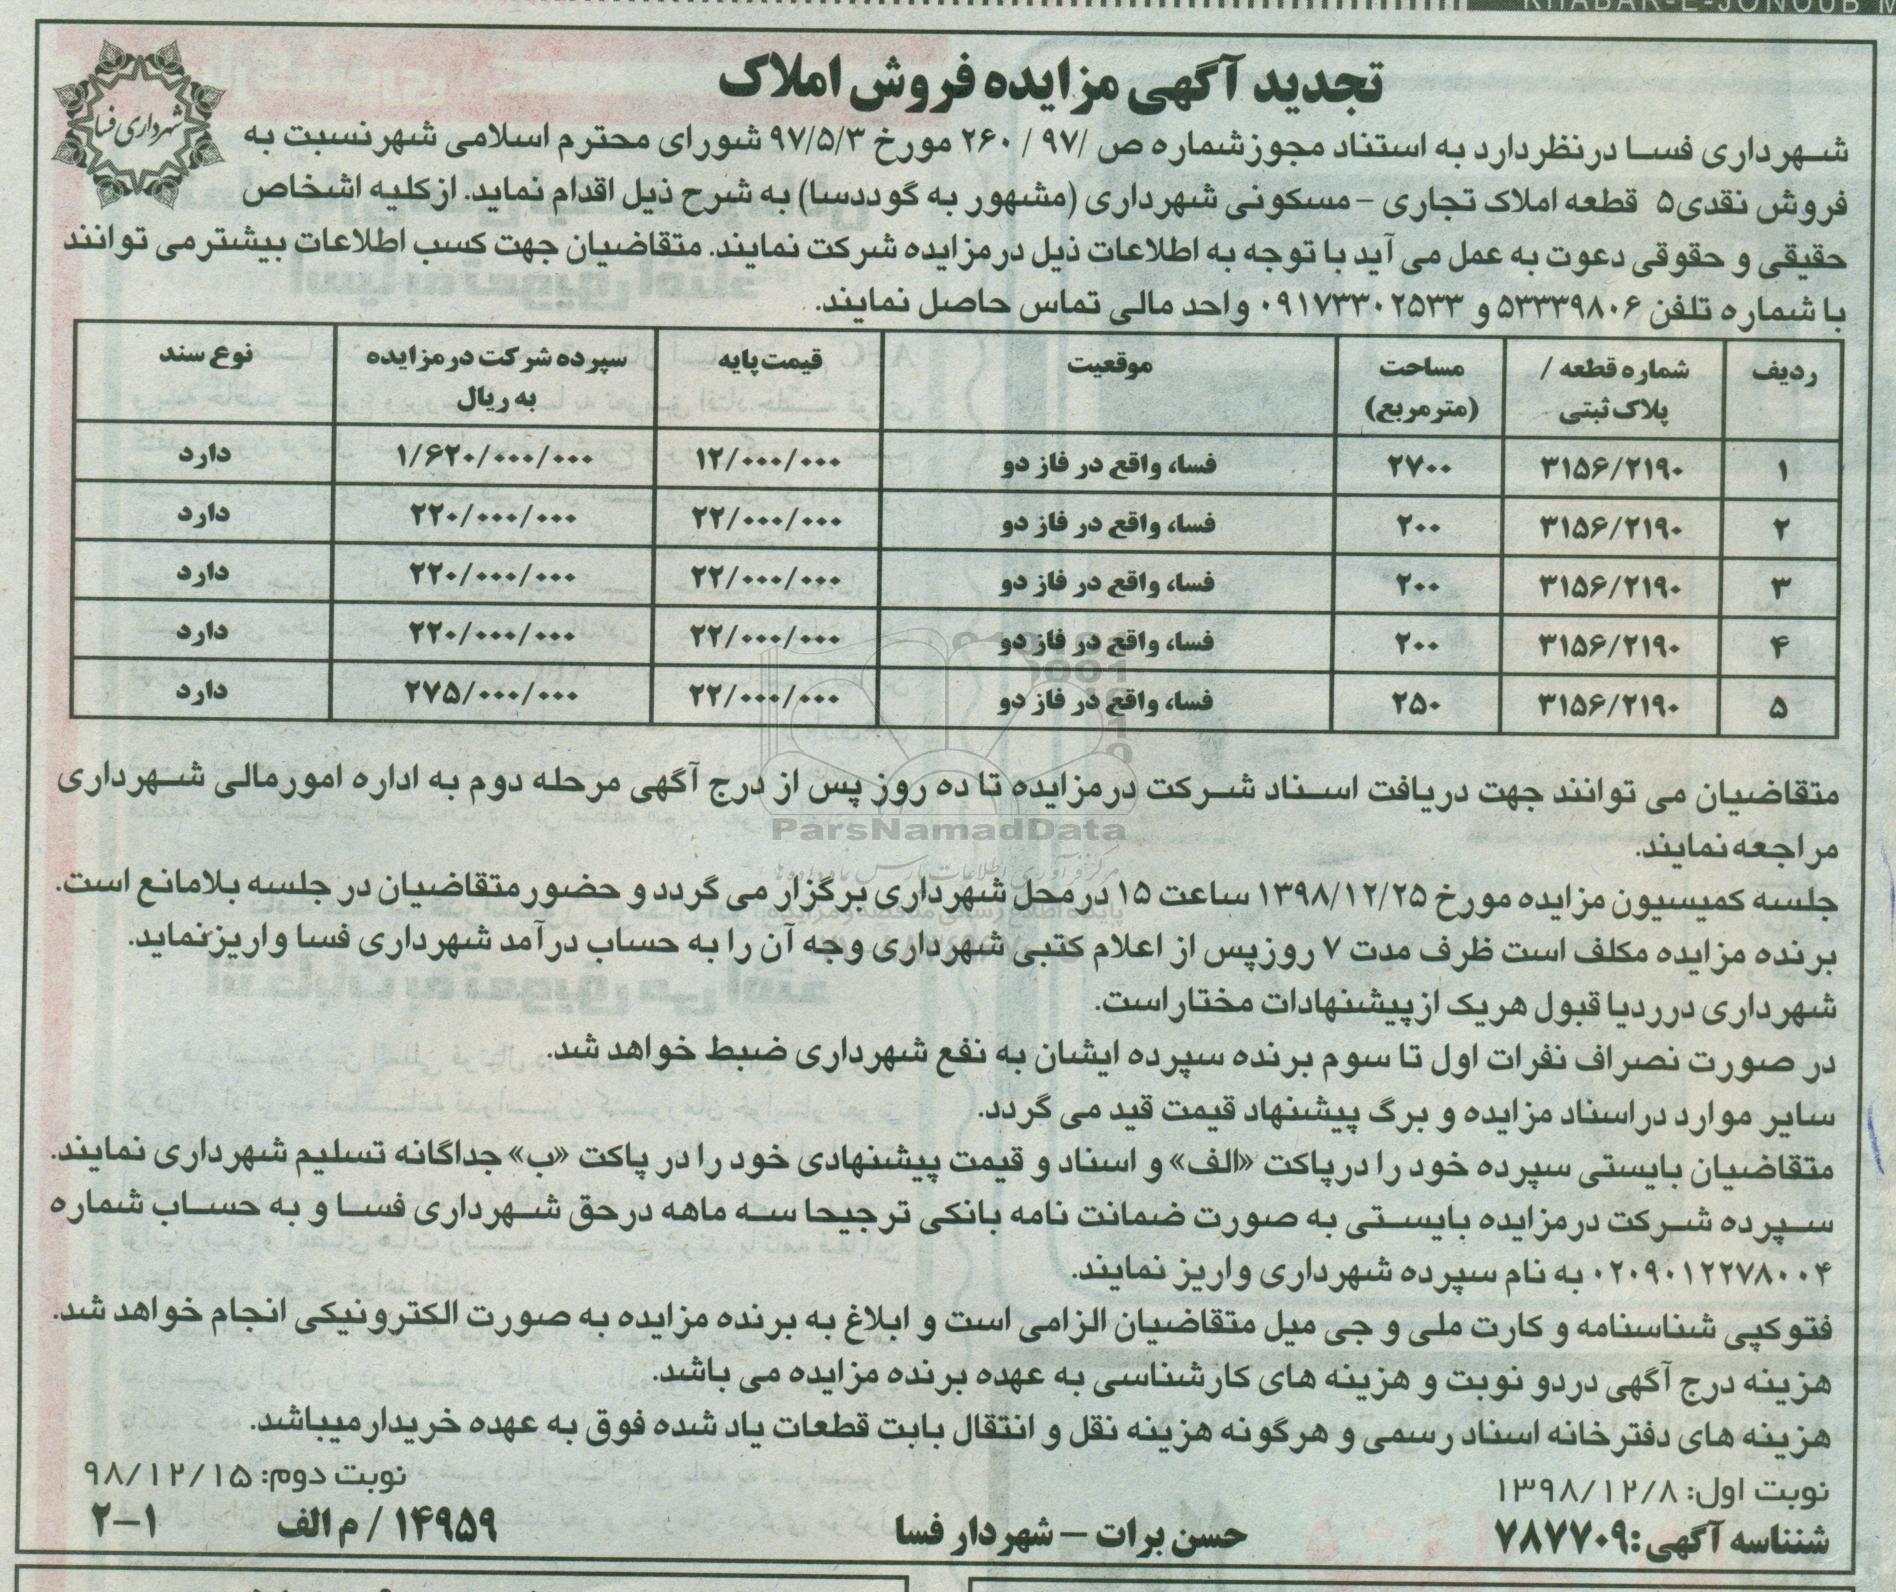 KHABAR-E-JONOUB
شهرداری فسا
تجدید آگهی مزایده فروش املاک
شهرداری فسا درنظردارد به استناد مجوزشماره ص /۹۷ / ۲۶۰ مورخ ۹۷/۵/۳ شورای محترم اسلامی شهرنسبت به
فروش نقدی۵ قطعه املاک تجاری - مسکونی شهرداری (مشهور به گوددسا) به شرح ذیل اقدام نماید. ازکلیه اشخاص
حقیقی و حقوقی دعوت به عمل می آید با توجه به اطلاعات ذیل درمزایده شرکت نمایند. متقاضیان جهت کسب اطلاعات بیشترمی توانند
با شماره تلفن ۵۳۳۳۹۸۰۶ و ۰۹۱۷۳۳۰۲۵۳۳ واحد مالی تماس حاصل نمایند.
ردیف | شماره قطعه / پلاک ثبتی | مساحت (مترمربع) | موقعیت | قیمت پایه | سپرده شرکت درمزایده به ریال | نوع سند
۱ | ۳۱۵۶/۲۱۹۰ | ۲۷۰۰ | فسا، واقع در فاز دو | ۱۲/۰۰۰/۰۰۰ | ۱/۶۲۰/۰۰۰/۰۰۰ | دارد
۲ | ۳۱۵۶/۲۱۹۰ | ۲۰۰ | فسا، واقع در فاز دو | ۲۲/۰۰۰/۰۰۰ | ۲۲۰/۰۰۰/۰۰۰ | دارد
۳ | ۳۱۵۶/۲۱۹۰ | ۲۰۰ | فسا، واقع در فاز دو | ۲۲/۰۰۰/۰۰۰ | ۲۲۰/۰۰۰/۰۰۰ | دارد
۴ | ۳۱۵۶/۲۱۹۰ | ۲۰۰ | فسا، واقع در فاز دو | ۲۲/۰۰۰/۰۰۰ | ۲۲۰/۰۰۰/۰۰۰ | دارد
۵ | ۳۱۵۶/۲۱۹۰ | ۲۵۰ | فسا، واقع در فاز دو | ۲۲/۰۰۰/۰۰۰ | ۲۷۵/۰۰۰/۰۰۰ | دارد
متقاضیان می توانند جهت دریافت اسناد شرکت درمزایده تا ده روز پس از درج آگهی مرحله دوم به اداره امورمالی شهرداری
ParsNamadData
مراجعه نمایند.
جلسه کمیسیون مزایده مورخ ۱۳۹۸/۱۲/۲۵ ساعت ۱۵ درمحل شهرداری برگزار می گردد و حضورمتقاضیان در جلسه بلامانع است.
برنده مزایده مکلف است ظرف مدت ۷ روزپس از اعلام کتبی شهرداری وجه آن را به حساب درآمد شهرداری فسا واریزنماید.
شهرداری درردیا قبول هریک ازپیشنهادات مختاراست.
در صورت نصراف نفرات اول تا سوم برنده سپرده ایشان به نفع شهرداری ضبط خواهد شد.
سایر موارد دراسناد مزایده و برگ پیشنهاد قیمت قید می گردد.
متقاضیان بایستی سپرده خود را درپاکت «الف» و اسناد و قیمت پیشنهادی خود را در پاکت «ب» جداگانه تسلیم شهرداری نمایند.
سپرده شرکت درمزایده بایستی به صورت ضمانت نامه بانکی ترجیحا سه ماهه درحق شهرداری فسا و به حساب شماره
۰۲۰۹۰۱۲۲۷۸۰۰۴ به نام سپرده شهرداری واریز نمایند.
فتوکپی شناسنامه و کارت ملی و جی میل متقاضیان الزامی است و ابلاغ به برنده مزایده به صورت الکترونیکی انجام خواهد شد.
هزینه درج آگهی دردو نوبت و هزینه های کارشناسی به عهده برنده مزایده می باشد.
هزینه های دفترخانه اسناد رسمی و هرگونه هزینه نقل و انتقال بابت قطعات یاد شده فوق به عهده خریدارمیباشد.
نوبت اول: ۱۳۹۸/۱۲/۸ نوبت دوم: ۹۸/۱۲/۱۵
شنناسه آگهی:۷۸۷۷۰۹ حسن برات - شهردار فسا ۱۴۹۵۹/ م الف ۲-۱